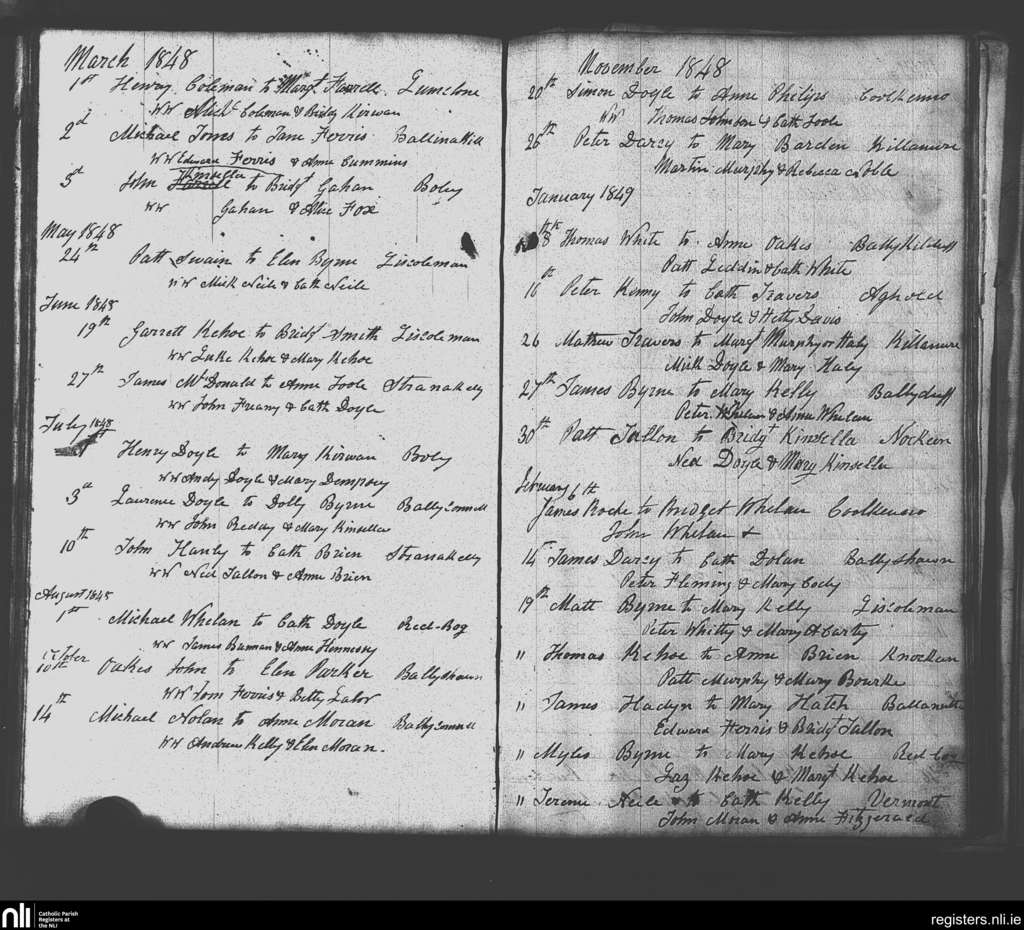 March 1848
1st Henry Coleman to Margt Farrell
WW Mick Coleman & Bridy Kirwan
2d Michael Jones to Jane Ferris Ballinakill
WW Edward Ferris & Anne Cummins
Kinsella
3d John to Bridgt Gahan Boley
WW Gahan & Alice Fox
May 1848
24th Patt Swain to Elen Byrne Liscoleman
WW Mick Neile & Cath Neile
June 1848
19th Garrett Kehoe to Bridgt Smith Liscoleman
WW Luke Kehoe & Mary Kehoe
27th James McDonald to Anne Toole Stranakelly
WW John Freany & Cath Doyle
July 1848
Henry Doyle to Mary Kirwan Boley
WW Andy Doyle & Mary Dempsey
3d Laurence Doyle to Dolly Byrne Ballyconnell
WW John Reddy & Mary Kinsella
10th John Hanly to Cath Brien Stranakelly
WW Neil Tallon & Anne Brien
August 1848
1st Michael Whelan to Cath Doyle Red-Bog
WW James Brennan & Anne Hennessy
10th Oakes John to Elen Parker Ballyshawn
WW Tom Ferris & Betty Lalor
14th Michael Nolan to Anne Moran Ballyconnell
WW Andrew Kelly & Elen Moran.
November 1848
20th Simon Doyle to Anne Philips Coolkenno
WW Thomas Johnson & Cath Toole
26th Peter Darcy to Mary Barden Killamure
Martin Murphy & Rebecca Noble
January 1849
8th Thomas White to Anne Oakes
Patt Leddin & Cath White
16th Peter Kinny to Cath Travers Aghold
John Doyle & Davis
26 Mathew Travers to Margt Murphy or Haly Killamure
Mick Doyle & Mary Haly
27th James Byrne to Mary Kelly Ballyduff
Peter Whelan & Anne Whelan
30th Patt Tallon to Bridgt Kinsella Nockeen
Ned Doyle & Mary Kinsella
February 6th
James Roche to Bridget Whelan Coolkenno
John Whelan &
14 James Darcy to Cath Dolan Ballyshawn
Peter Fleming & Mary Cody
19th Matt Byrne to Mary Kelly Liscoleman
Peter Whitty & Mary A Carty
" Thomas Kehoe to Anne Brien Knockeen
Patt Murphy & Mary Bourke
" James Hadyn to Mary Hatch
Edward Ferris & Bridgt Tallon
" Myles Byrne to Mary Kehoe Red Bog
Kehoe & Margt Kehoe
" Jereme Neile to Cath Kelly Vermont
John Moran & Anne Fitzgerald
nli Catholic Parish
Registers at
the NLI
registers.nli.ie